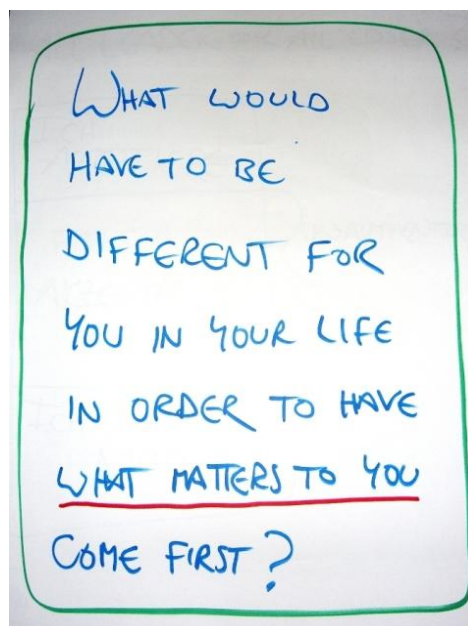 WHAT WOULD
HAVE TO BE
DIFFERENT FOR
YOU IN YOUR LIFE
IN ORDER TO HAVE
WHAT MATTERS TO YOU
COME FIRST?